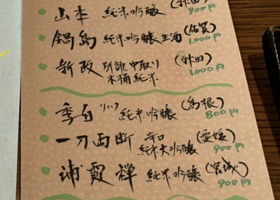 山本 純米吟醸 (秋田) 900円
鍋島 純米吟醸生酒 (佐賀) 1000円
新政 中取り 木桶純米 (秋田) 1000円
李白 純米吟醸 (島根) 800円
一刀両断 辛口 純米大吟醸 (愛媛) 900円
浦霞禅 純米吟醸 (宮城) 900円